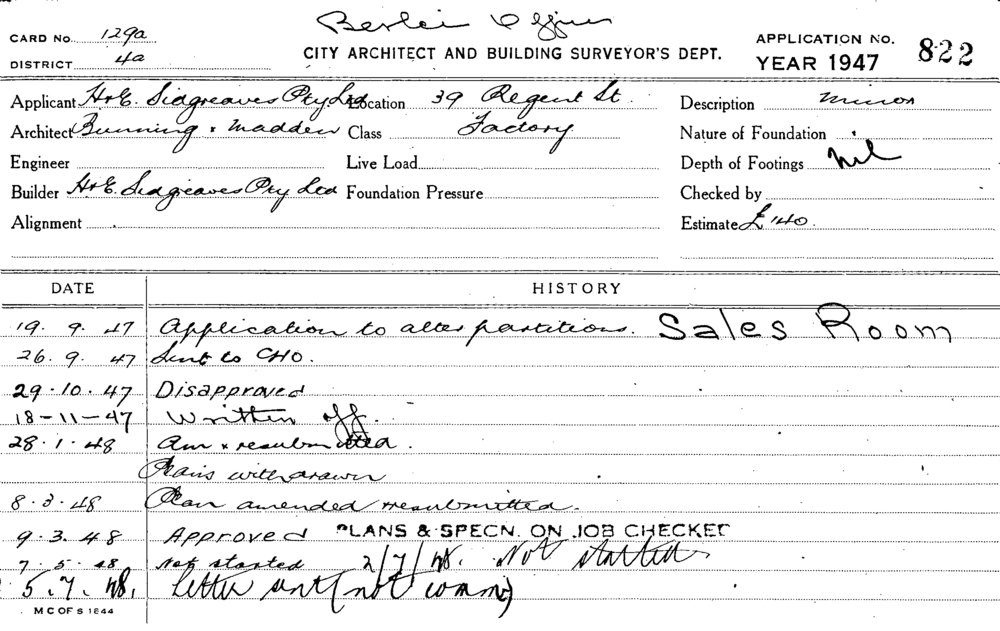 CARD No. 129a
DISTRICT 4a
CITY ARCHITECT AND BUILDING SURVEYOR'S DEPT.
APPLICATION NO. 822
YEAR 1947
Applicant H & E. Sidgreaves Pty Ltd Location 39 Regent St. Description Minor
Architect Bunning & Madden Class Factory Nature of Foundation
Engineer Live Load Depth of Footings Nil
Builder H & E. Sidgreaves Pty Ltd Foundation Pressure Checked by
Alignment Estimate £140.
DATE HISTORY
19. 9. 47 Application to alter partitions. Sales Room
26. 9. 47 Sent to CHO.
29.10.47 Disapproved
18-11-47 Written off.
28.1.48 Am & resubmitted.
Plans withdrawn
8.3.48 Plan amended & resubmitted.
9.3.48 Approved PLANS & SPECN. ON JOB CHECKED
7.5.48 Not started 2/7/48. Not started
5.7.48. Letter sent (not comm)
M C OF S 1844